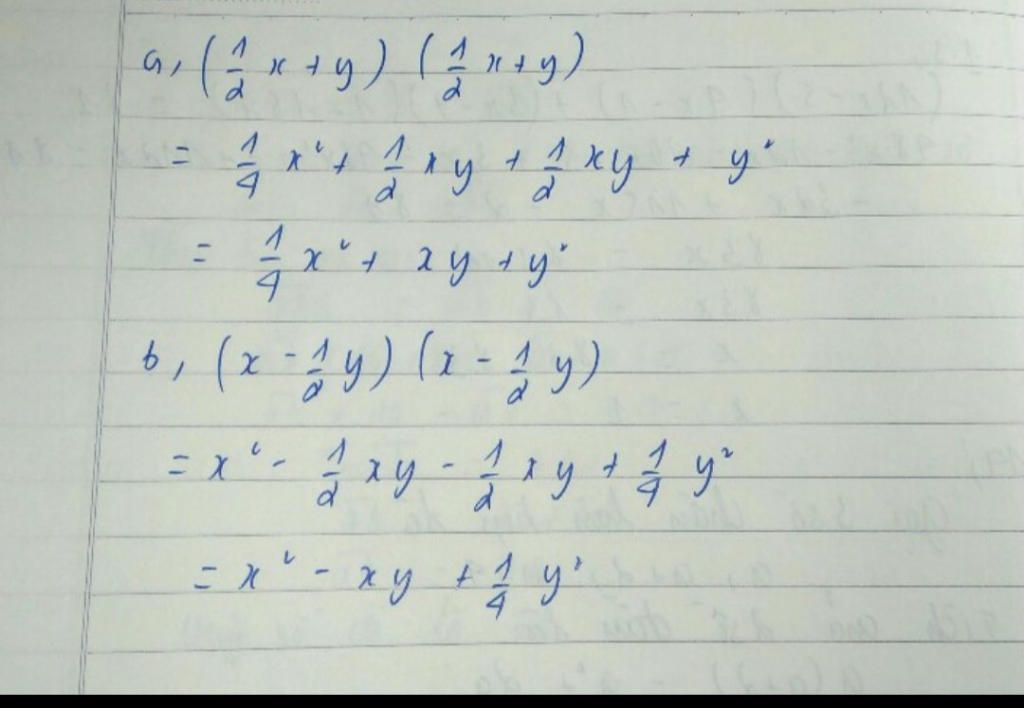 a, (1/2 x + y) (1/2 x + y)
= 1/4 x² + 1/2 xy + 1/2 xy + y²
= 1/4 x² + xy + y²
b, (x - 1/2 y) (x - 1/2 y)
= x² - 1/2 xy - 1/2 xy + 1/4 y²
= x² - xy + 1/4 y²